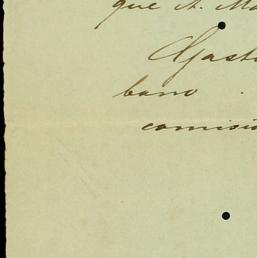 que A. Ma
Gast
bano .
comisi